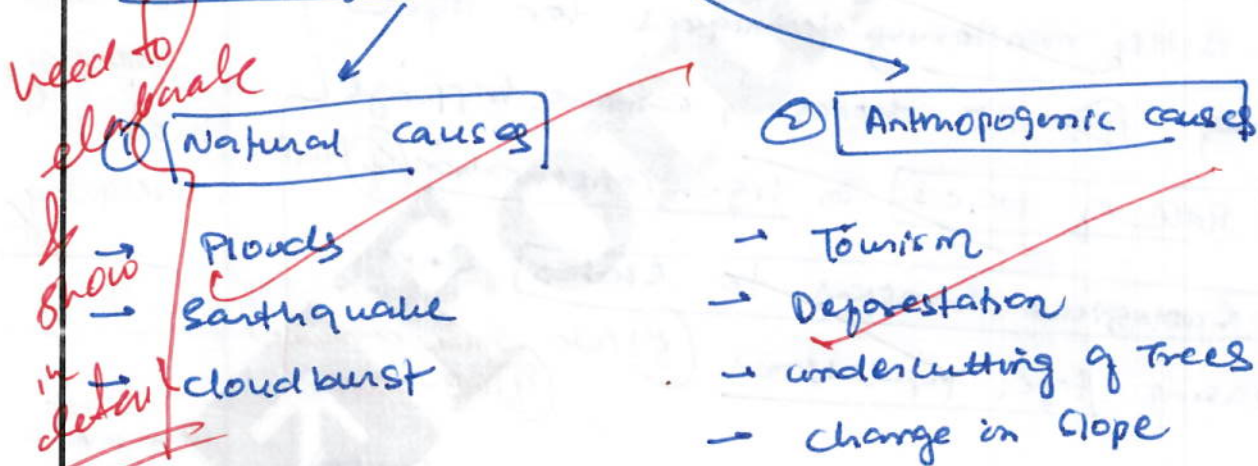 need to
elaborate
&
show
in
detail
① Natural causes
→ Plouds
→ Earthquake
→ cloudburst
② Anthropogenic causes
→ Tourism
→ Deforestation
→ undercutting of Trees
→ change in slope